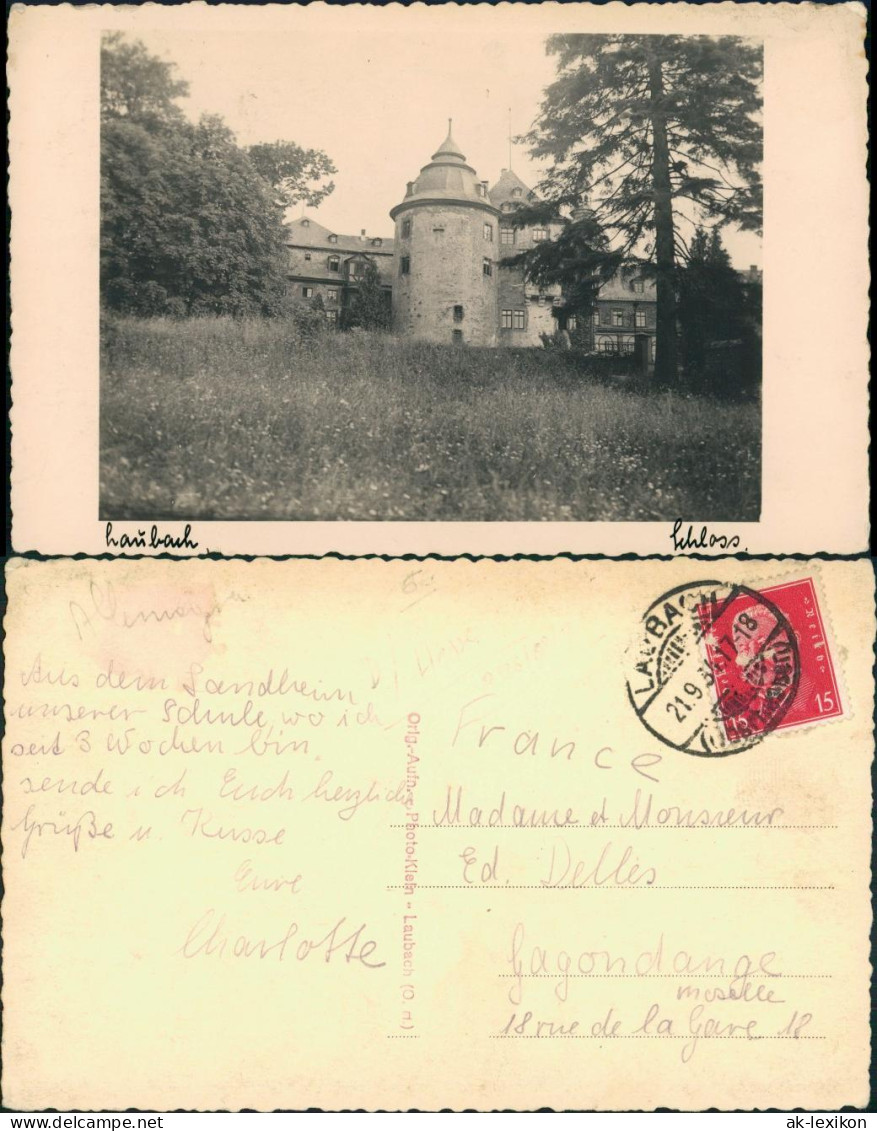 Laubach, Schloss.
Allemagne
Aus dem Landheim
unserer Schule, wo ich
seit 3 Wochen bin,
sende ich Euch herzliche
Grüße u. Küsse
Eure
Charlotte
Orig.-Aufn. Photo-Klein - Laubach (O. H.)
LAUBACH
21.9.34.17-18
15
France
Madame et Monsieur
Ed. Delles
Gagondange
Moselle
18 rue de la Gare 18
www.ansichtskarten-lexikon.de
ak-lexikon